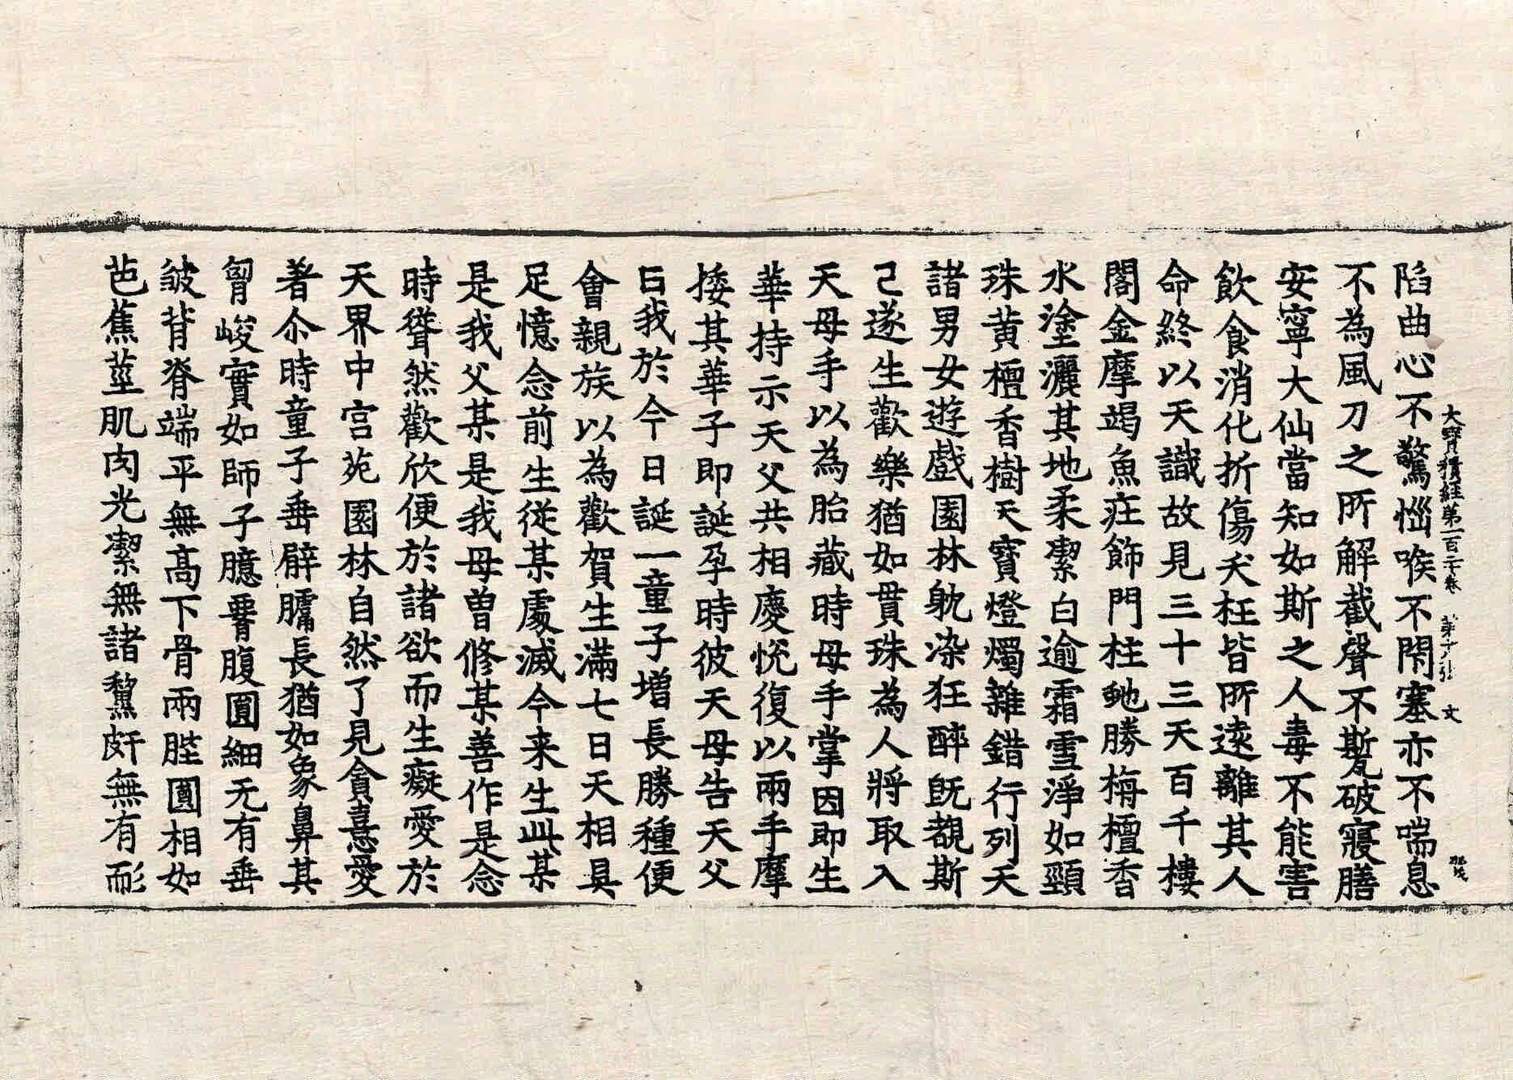 大寶積經第一百二十卷 第十張 文
陷曲心不驚惱喉不閇塞亦不喘息
不為風刀之所解截聲不嘶破寢膳
安寧大仙當知如斯之人毒不能害
飲食消化折傷夭枉皆所遠離其人
命終以天識故見三十三天百千樓
閣金摩竭魚疰飾門柱虵勝栴檀香
水塗灑其地柔潔白逾霜雪淨如頸
珠黄檀香樹天寶燈燭雜錯行列天
諸男女遊戲園林躭染狂醉旣覩斯
已遂生歡樂猶如貫珠為人將取入
天母手以為胎藏時母手掌因即生
華持示天父共相慶悅復以兩手摩
挼其華子即誕孕時彼天母告天父
曰我於今日誕一童子增長勝種便
會親族以為歡賀生滿七日天相具
足憶念前生從某處滅今来生此某
是我父某是我母曽修某善作是念
時聳然歡欣便於諸欲而生癡愛於
天界中宮苑園林自然了見貪憙愛
著尒時童子垂臂𦟛長猶如象鼻其
䏺峻實如師子臆臍腹圓細无有垂
皺背脊端平無高下骨兩䏶圓相如
芭蕉莖肌肉光潔無諸黧皯無有耏